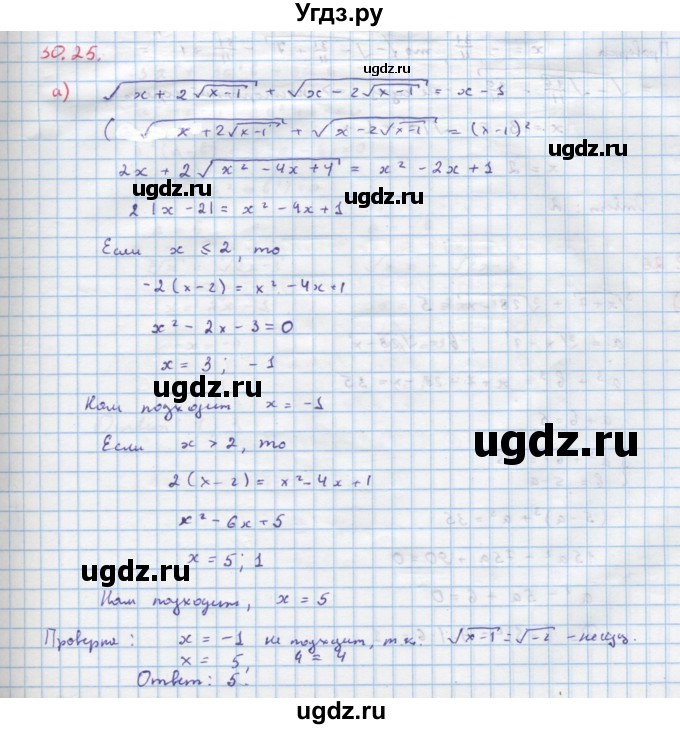 Угдз.ру
30.25.
а) √(x + 2√(x-1)) + √(x - 2√(x-1)) = x - 1
ugdz.ru
( √(x + 2√(x-1)) + √(x - 2√(x-1)) = (x-1)²
2x + 2√(x² - 4x + 4) = x² - 2x + 1
ugdz.ru ugdz.ru
2 |x - 2| = x² - 4x + 1
Если x ≤ 2, то
-2(x-2) = x² - 4x + 1
x² - 2x - 3 = 0
x = 3 ; -1
ugdz.ru
Нам подходит x = -1
Если x > 2, то
ugdz.ru
2(x-2) = x² - 4x + 1
x² - 6x + 5
x = 5; 1
ugdz.ru
Нам подходит, x = 5
Проверка: x = -1 не подходит, т.к. √(x-1) = √-2 -
x = 5, 4 = 4
Ответ: 5.
ugdz.ru
ugdz.ru